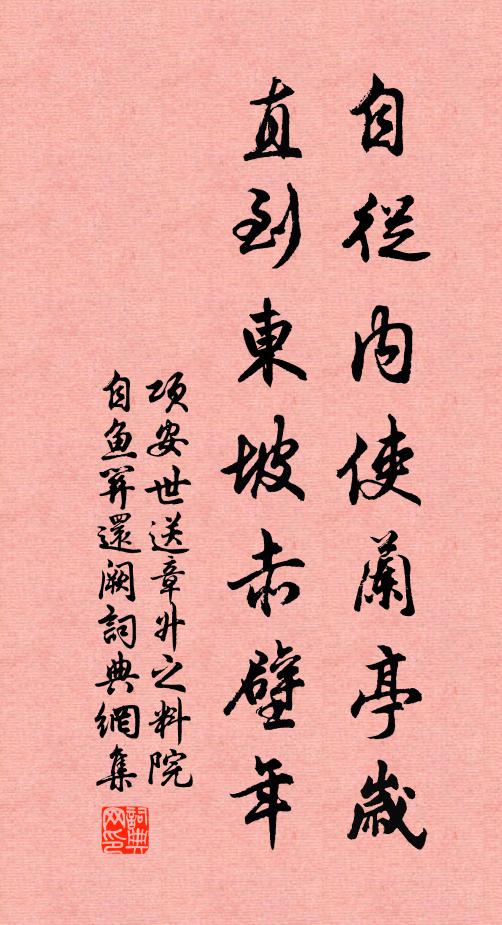 自從内使蘭亭歲
直到東坡赤壁年
項安世送章升之料院
自魚關還阙詞典網集
詞典网印